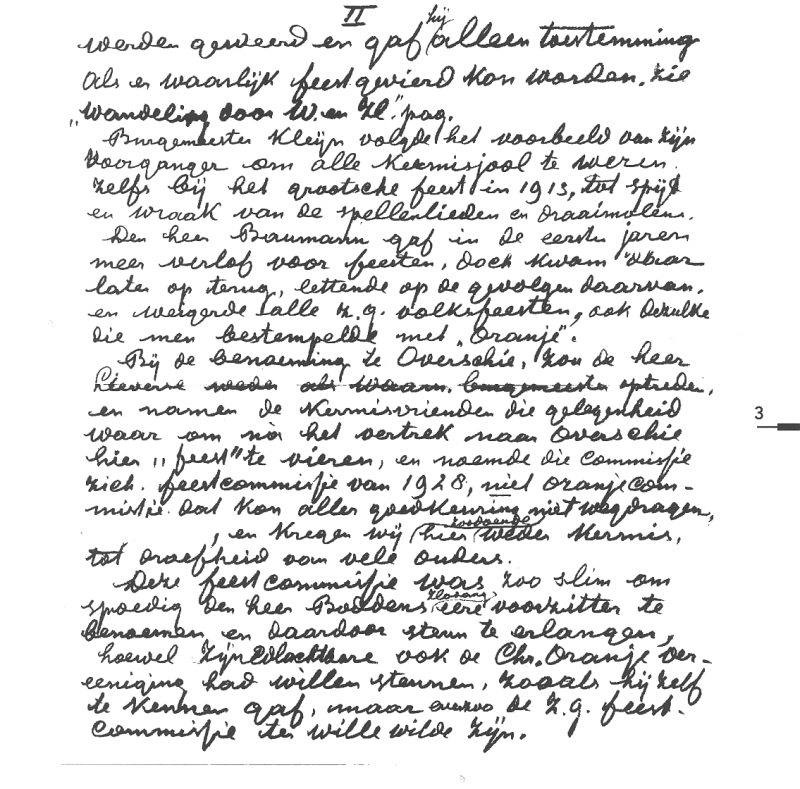 II
werden geweerd en gaf hij alleen toestemming
als er waarlijk feest gevierd kon worden. Zie
„Wandeling door W. en Zl." pag.
Burgemeester Kleijn volgde het voorbeeld van zijn
voorganger om alle Kermisjool te weren.
Zelfs bij het grootsche feest in 1913, tot spijt
en wraak van de spellenlieden en draaimolens.
Den heer Baumann gaf in de eerste jaren
meer verlof voor feesten, doch kwam daar
later op terug, lettende op de gevolgen daarvan,
en weigerde alle z.g. volksfeesten, ook dezulke
die men bestempelde met „Oranje".
Bij de benoeming te Overschie, zou de heer
Lieverse weder als waarn. burgemeester optreden,
en namen de Kermisvrienden die gelegenheid
waar om nà het vertrek naar Overschie
hier „feest" te vieren, en noemde die Commissie
zich. feestcommissie van 1928, niet oranjecom-
missie. dat kon aller goedkeuring niet wegdragen,
, en kregen wij hier zoodoende weder Kermis,
tot droefheid van vele ouders.
Deze feestcommissie was zoo slim om
spoedig den heer Boddens eere voorzitter te
benoemen, en daardoor steun te erlangen,
hoewel zijn Edlachtbare ook de Chr. Oranje Ver-
eeniging had willen steunen, zooals hij zelf
te kennen gaf, maar de z.g. feest-
Commissie ter wille wilde zijn.
3